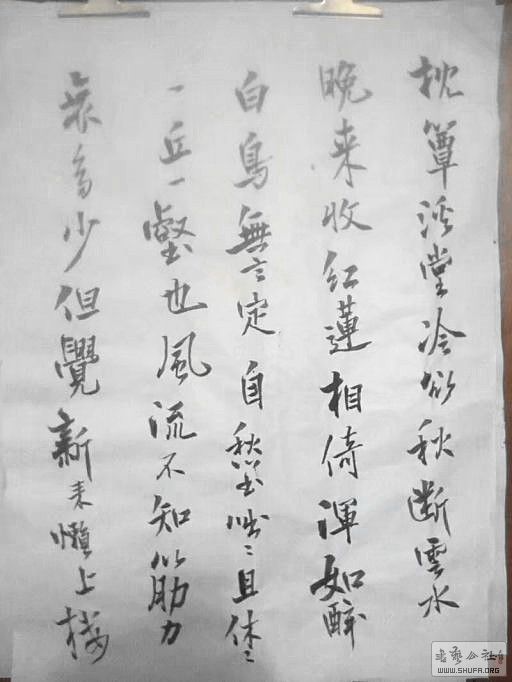 枕簟溪堂冷欲秋断雲水
晚来收红蓮相倚渾如醉
白鳥無言定自愁書咄々且休々
一丘一壑也風流不知筋力
衰多少但覺新来懶上楼
書藝公社
WWW.SHUFA.ORG